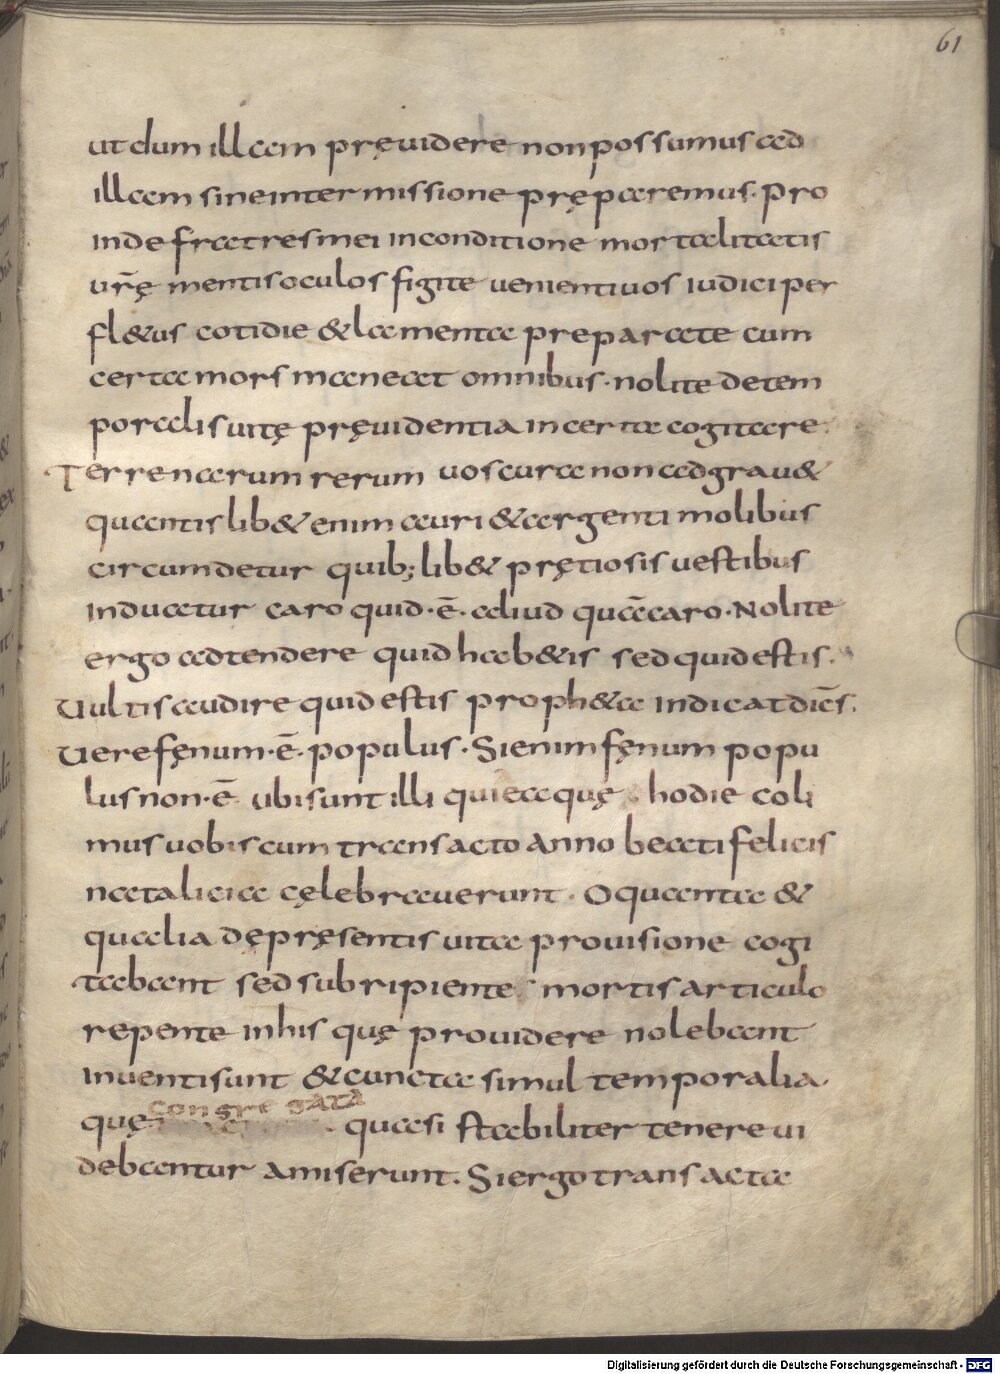 61
ut dum illam pręuidere non possumus ad
illam sine intermissione pręparemus. Pro
inde fratres mei in conditione mortalitatis
ur̄ę mentis oculos figite uenienti uos iudici per
fl&us cotidie & lamenta preparate cum
certa mors maneat omnibus. nolite de tem
poralis uitę pręuidentia incerta cogitare.
Terrenarum rerum uos cura non adgrau&
quantislib& enim auri & argenti molibus
circumdetur quib; lib& prętiosis uestibus
induatur caro quid .ē. aliud quā caro. Nolite
ergo adtendere quid hab&is sed quid estis.
Uultis audire quid estis proph&a indicat diēs.
Uere fęnum .ē. populus. Si enim fęnum popu
lus non .ē. ubi sunt illi qui ea quę hodie coli
mus uobiscum transacto anno beati felicis
natalicia cęlebrauerunt. O quanta &
qualia de pręsentis uita prouisione cogi
tabant sed subripiente mortis articulo
repente in his quę prouidere nolebant
inuenti sunt & cuncta simul temporalia.
quę congregata quasi stabiliter tenere ui
debantur amiserunt. Si ergo transacta
Digitalisierung gefördert durch die Deutsche Forschungsgemeinschaft - DFG